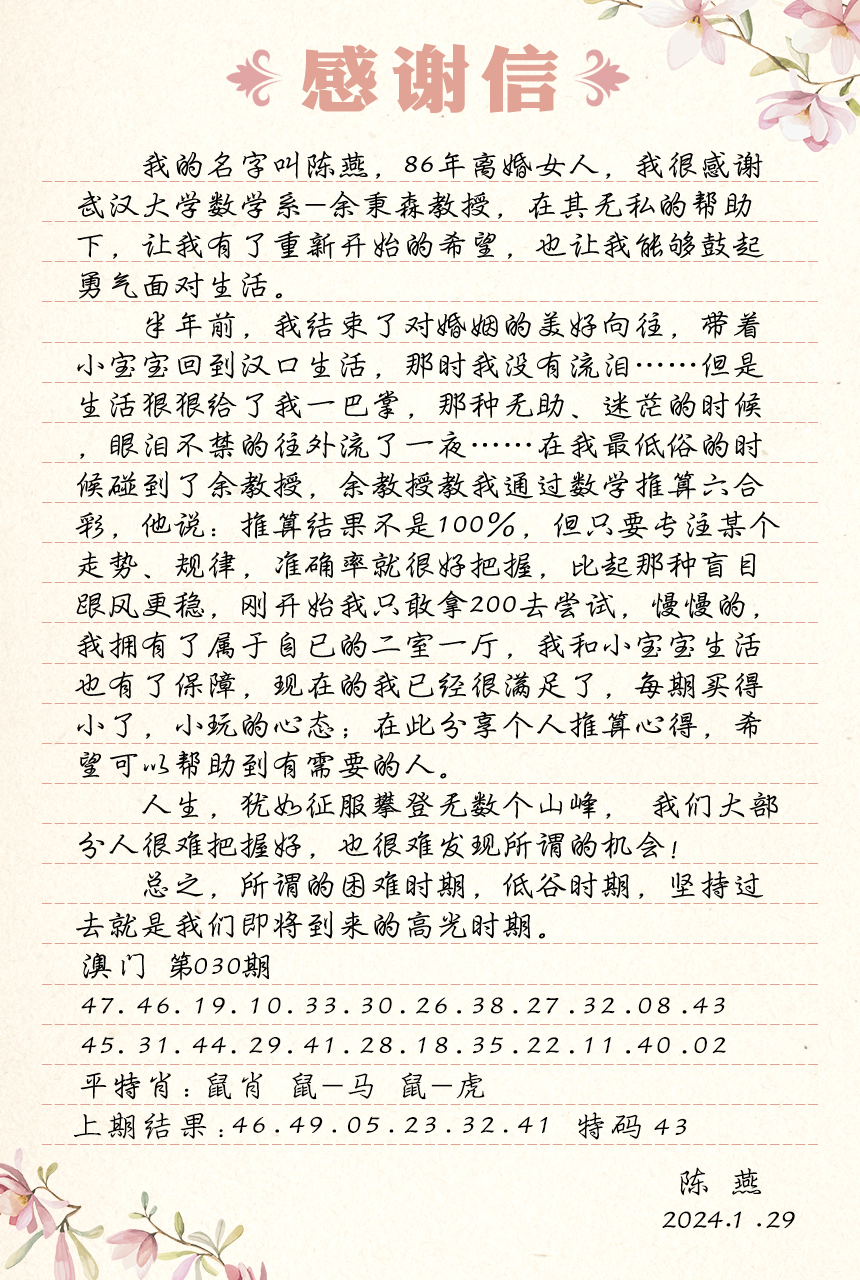 感谢信
我的名字叫陈燕，86年离婚女人，我很感谢
武汉大学数学系-余秉森教授，在其无私的帮助
下，让我有了重新开始的希望，也让我能够鼓起
勇气面对生活。
半年前，我结束了对婚姻的美好向往，带着
小宝宝回到汉口生活，那时我没有流泪……但是
生活狠狠给了我一巴掌，那种无助、迷茫的时候
，眼泪不禁的往外流了一夜……在我最低俗的时
候碰到了余教授，余教授教我通过数学推算六合
彩，他说：推算结果不是100%，但只要专注某个
走势、规律，准确率就很好把握，比起那种盲目
跟风更稳，刚开始我只敢拿200去尝试，慢慢的，
我拥有了属于自已的二室一厅，我和小宝宝生活
也有了保障，现在的我已经很满足了，每期买得
小了，小玩的心态；在此分享个人推算心得，希
望可以帮助到有需要的人。
人生，犹如征服攀登无数个山峰， 我们大部
分人很难把握好，也很难发现所谓的机会！
总之，所谓的困难时期，低谷时期，坚持过
去就是我们即将到来的高光时期。
澳门 第030期
47.46.19.10.33.30.26.38.27.32.08.43
45.31.44.29.41.28.18.35.22.11.40.02
平特肖：鼠肖 鼠-马 鼠-虎
上期结果：46.49.05.23.32.41 特码 43
陈 燕
2024.1.29